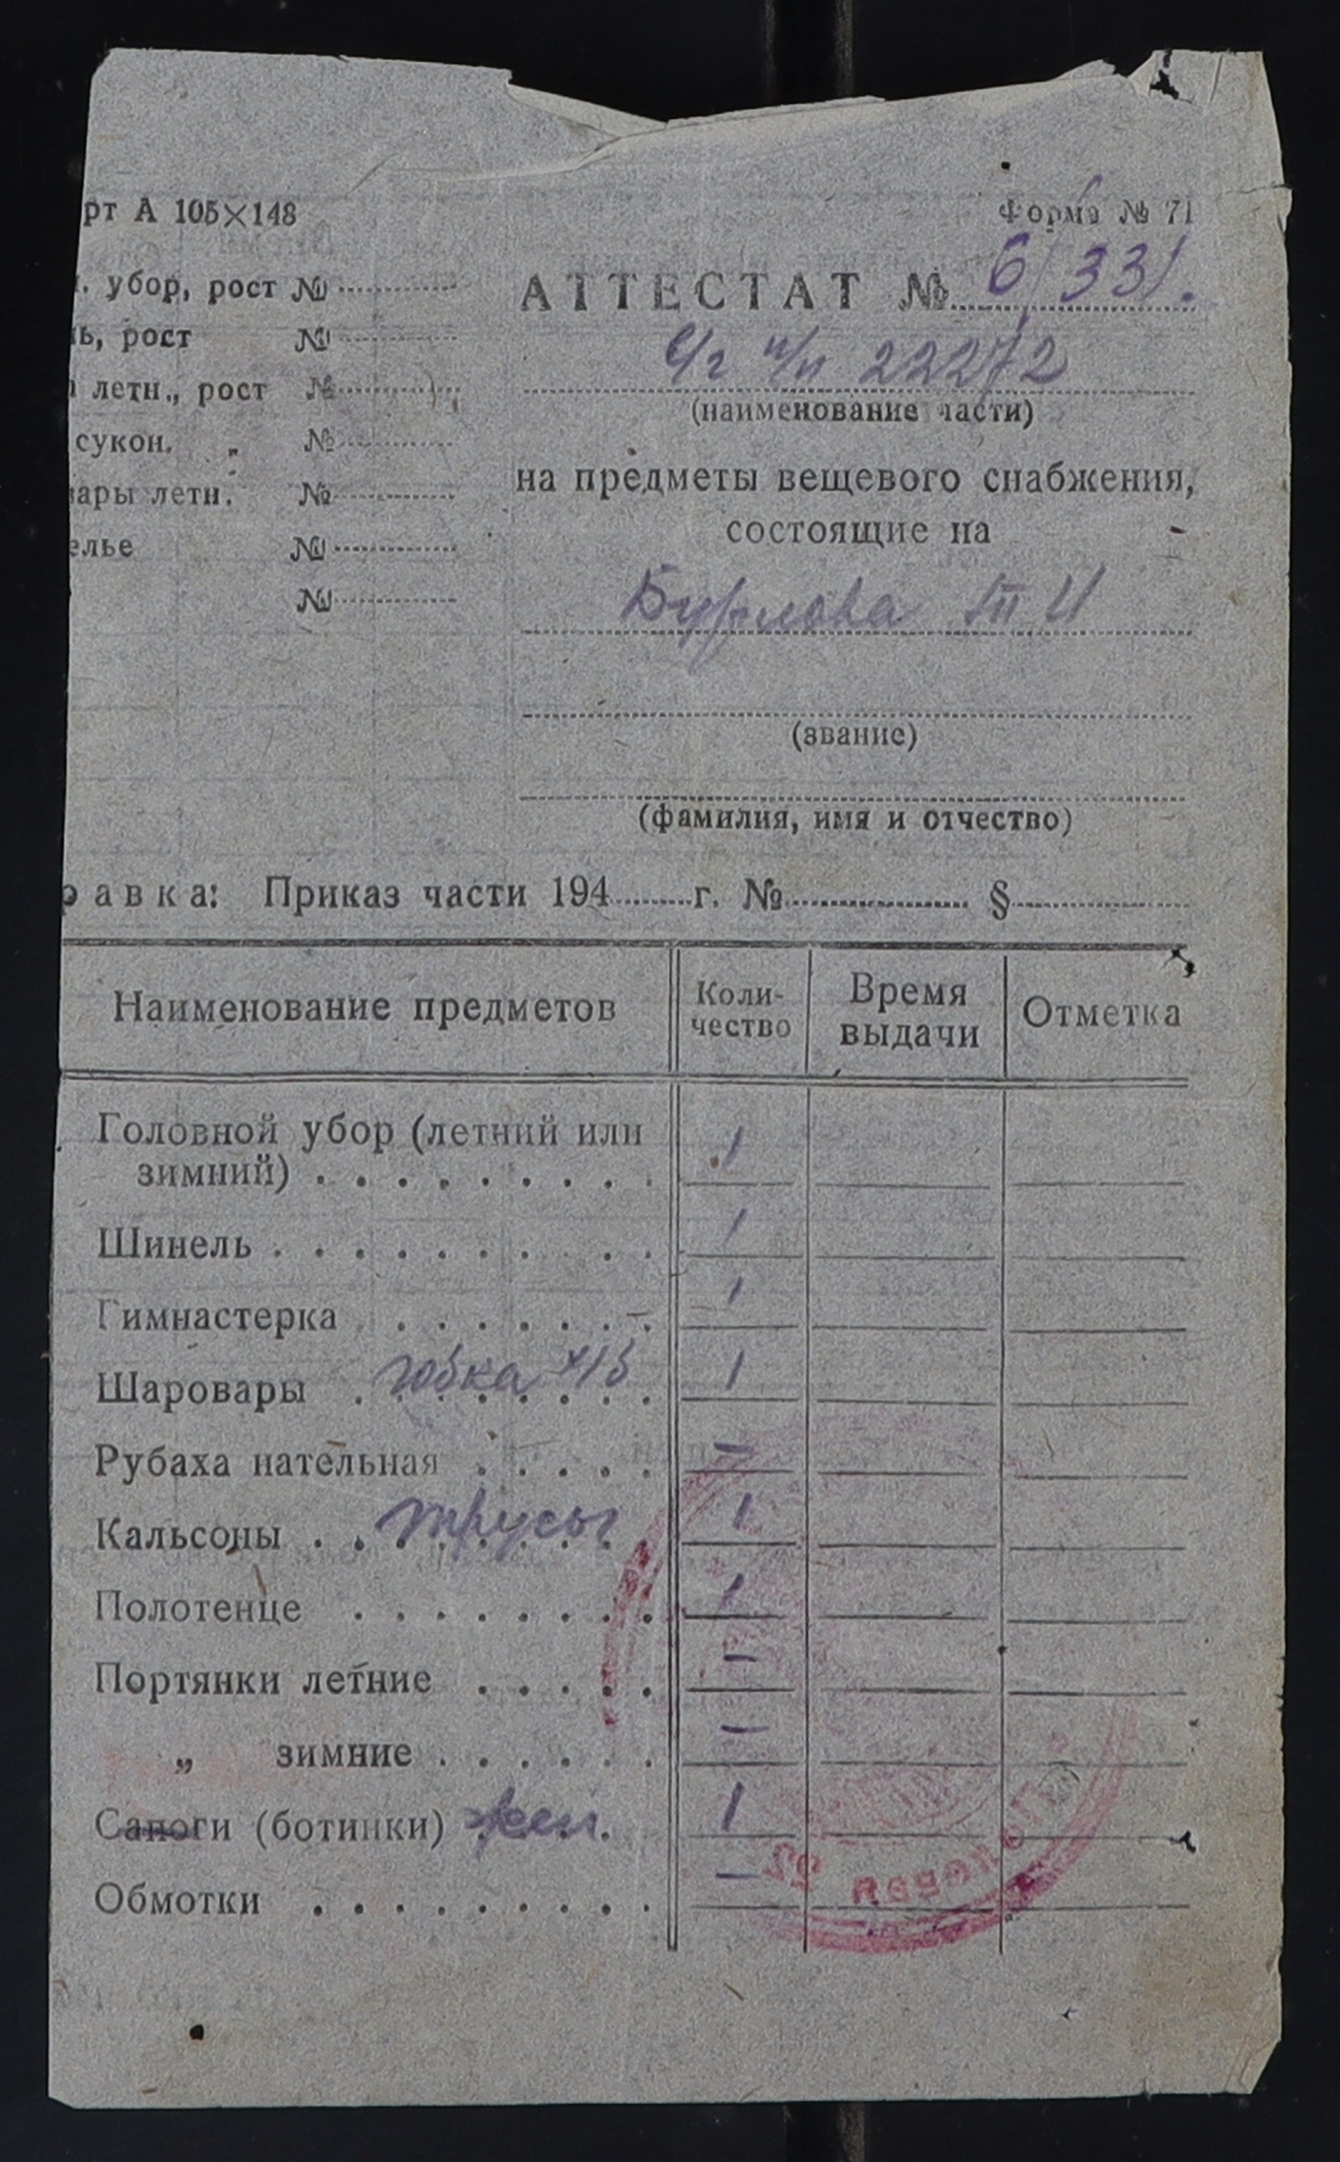 рт А 105×148
Форма № 71
. убор, рост №
ь, рост №
летн., рост №
сукон. „ №
вары летн. №
елье №
№
АТТЕСТАТ № 6/331.
с/г п/п 22272
(наименование части)
на предметы вещевого снабжения,
состоящие на
Бурлова
(звание)
(фамилия, имя и отчество)
равка: Приказ части 194 г. № §
Наименование предметов Коли- Время Отметка
чество выдачи
Головной убор (летний или
зимний) 1
Шинель 1
Гимнастерка 1
Шаровары юбка х/б 1
Рубаха нательная —
Кальсоны трусы 1
Полотенце 1
Портянки летние —
„ зимние —
Сапоги (ботинки) жен. 1
Обмотки —